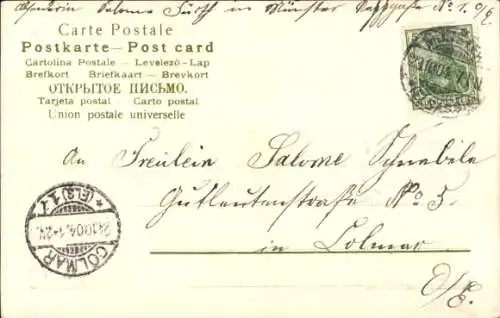 Schwärin Salome Fürst in Münster Nº 1. O/E.
Carte Postale
Postkarte — Post card
Cartolina Postale — Levelező-Lap
Brefkort Briefkaart — Brevkort
ОТКРЫТОЕ ПИСЬМО.
Tarjeta postal Carto postal
Union postale universelle
An Freulein Salome Schnebile
Gutleutenstraße Nº 5.
in Colmar
O/E.
COLMAR
(ELS) 1